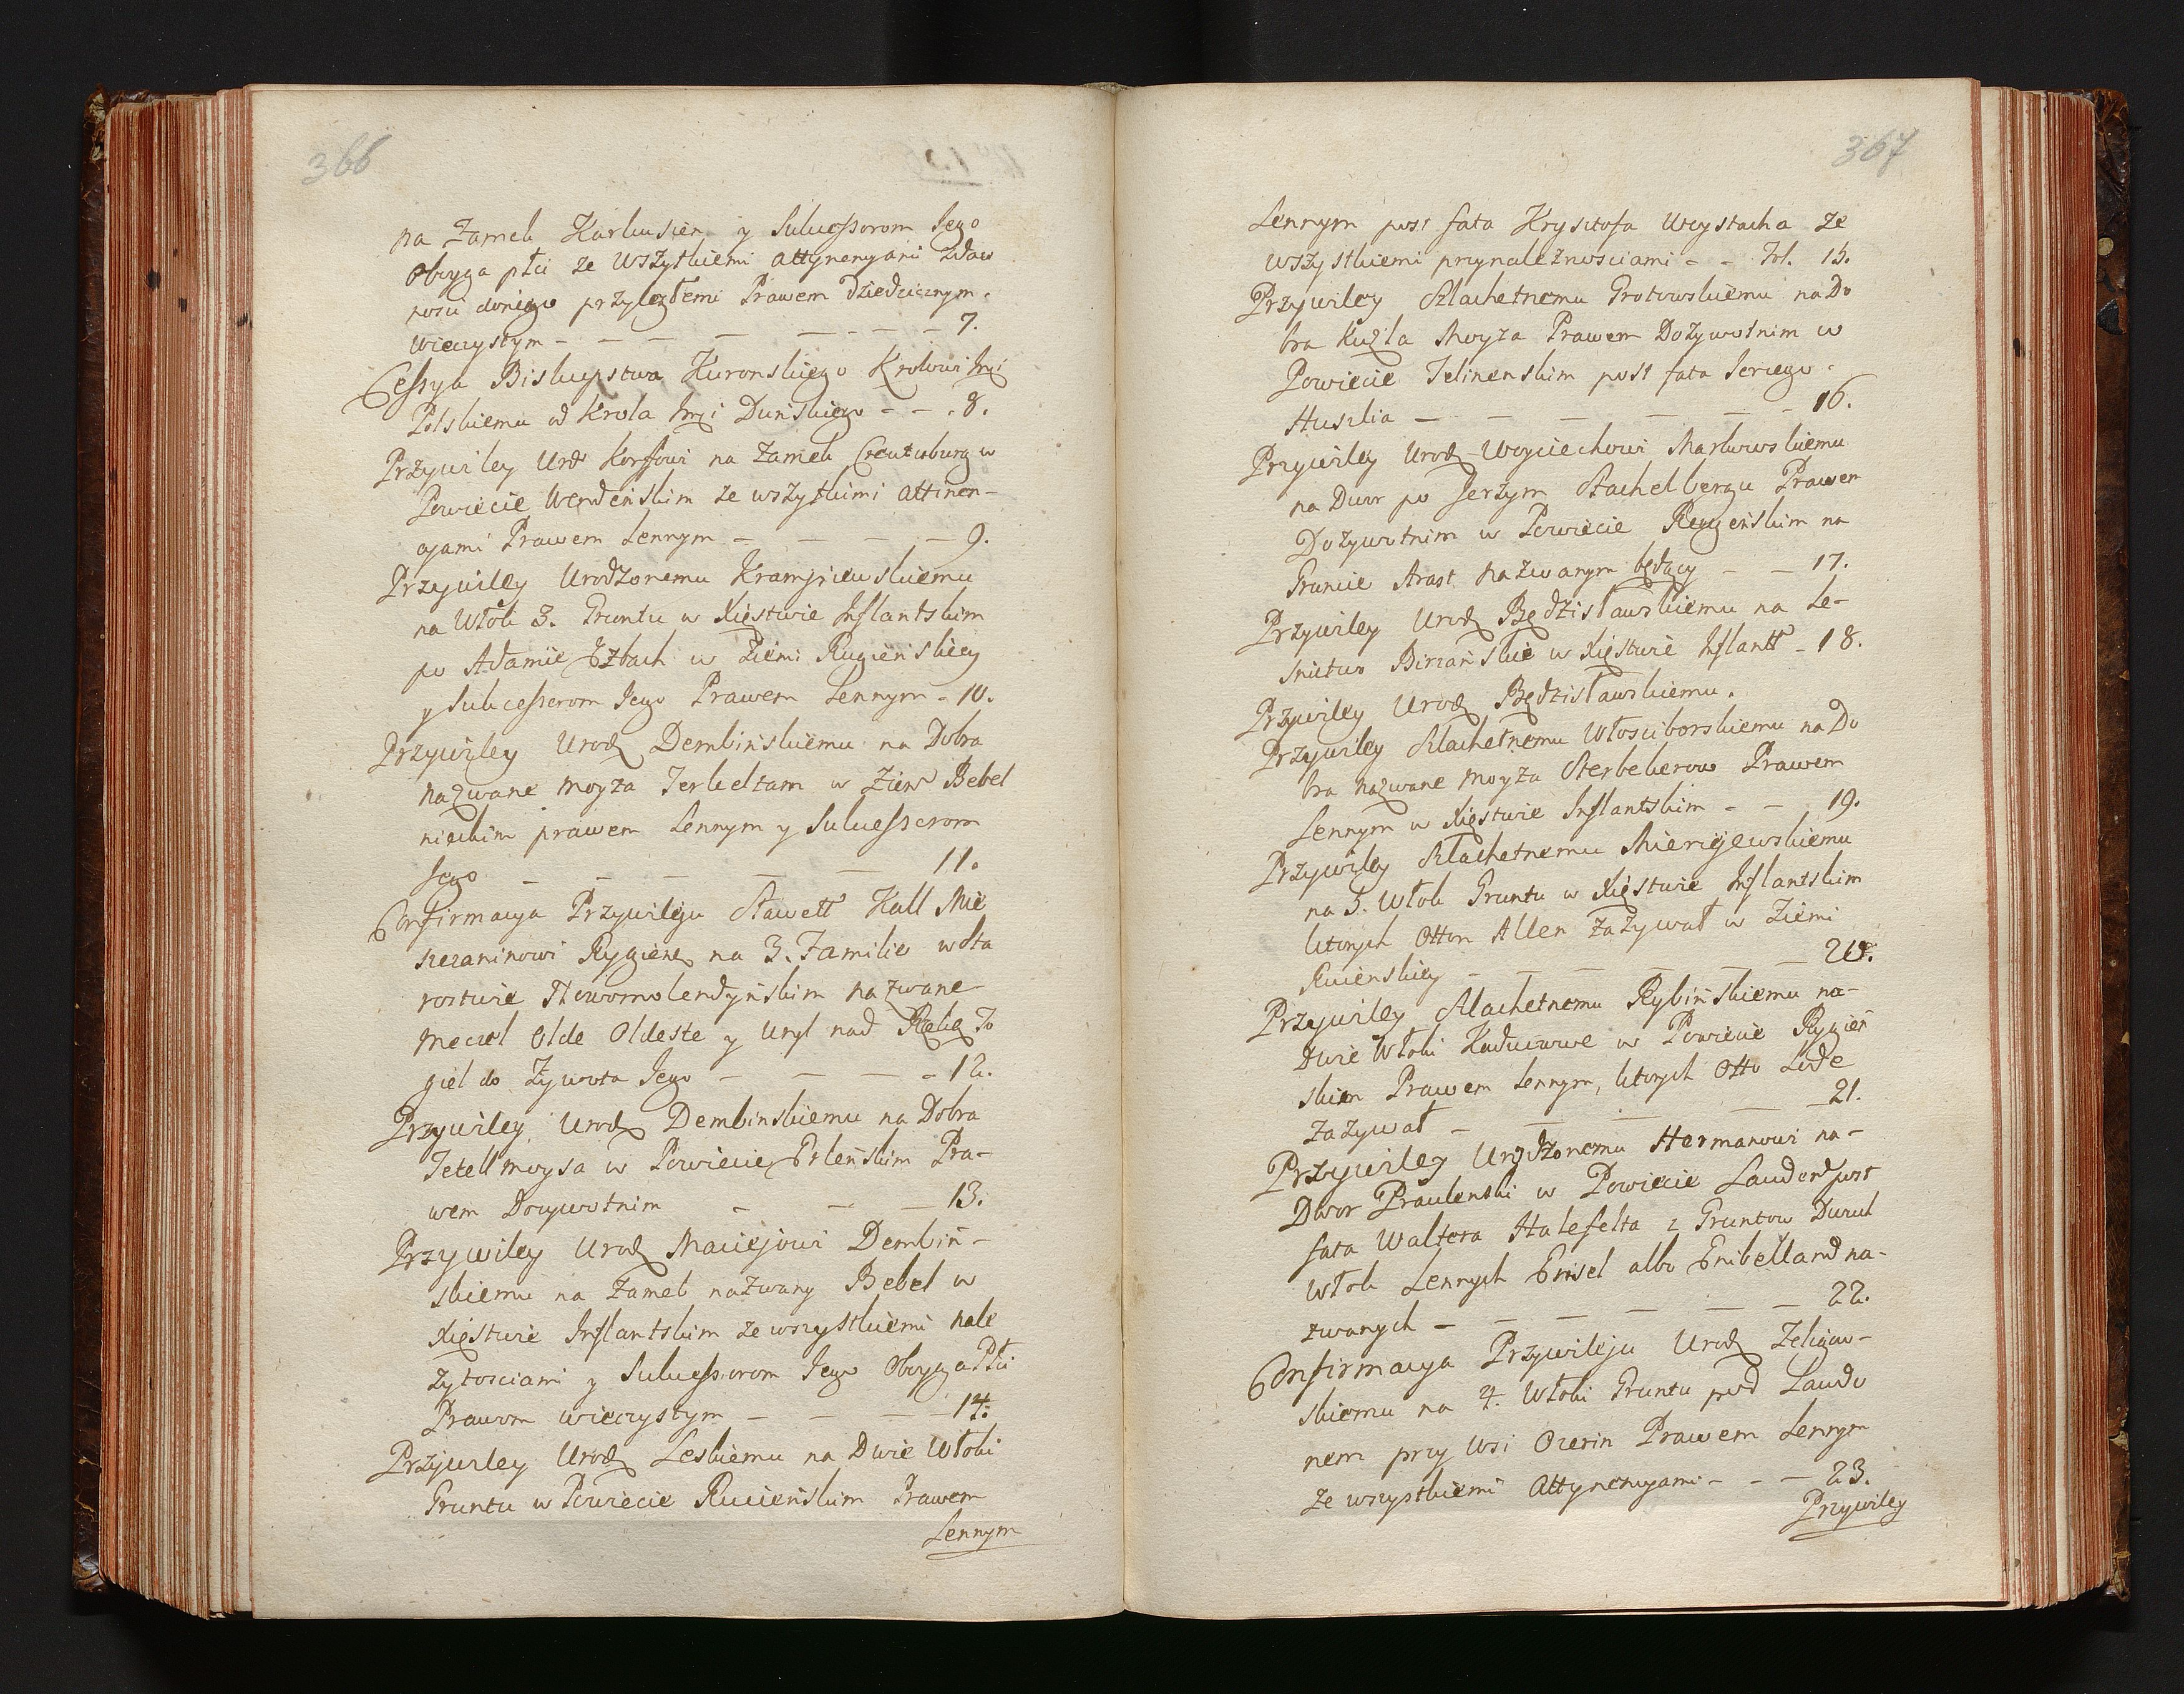 366
na Zamek Karkusien y Sukcessorom Jego
Oboyga płci ze Wszytkiemi attynencyami zdaw
nosci doniego przyległemi Prawem dziedzicznym
wieczystym - - - - - - - 7.
Cessya Biskupstwa Kuronskiego Krolowi Jmci
Polskiemu od Krola Jmci Duńskiego - - . 8.
Przywiley Urod Korffowi na Zamek Creutzburg w
Powiecie Wendeńskim ze wszytkimi attinen-
cyami Prawem Lennym - - - - 9.
Przywiley Urodzonemu Krampiewskiemu
na Włok 3. Gruntu w Xięstwie Inflantskim
po Adamie Ezbach w Ziemi Rugieńskiey
y Sukcessorom Jego Prawem Lennym - 10.
Przywiley Urod Dembińskiemu na Dobra
nazwane moyza Terkeltam w Ziem Bebel
nieckim prawem Lennym y Sukcessorom
Jego - - - - - 11.
Confirmacya Przywileju Stawett Kall Mie
szczaninowi Rygień na 3. Familie w Sta
rostwie Nowomolendyńskim nazwane
Meczel Olde Oldeste y Uryl nad Rzeką To
giel do Zywota Jego - - - - 12.
Przywiley Urod Dembinskiemu na Dobra
Tetellmoysa w Powiecie Erleńskim Pra-
wem Dozywotnim - - - 13.
Przywiley Urod Maciejowi Dembiń-
skiemu na Zamek nazwany Bebel w
Xięstwie Inflantskim ze wszystkiemi nale
zytosciami y Sukcessorom Jego Oboyga Płci
Prawem wieczystym - - - - 14.
Przywiley Urod Leskiemu na Dwie Włoki
Gruntu w Powiecie Rucieńskim Prawem
Lennym
367
Lennym post fata Krysztofa Ucystacha ze
wszystkiemi przynaleznosciami - - Fol. 15.
Przywiley Szlachetnemu Grotowskiemu na Do
bra Kuzla Moyza Prawem Dozywotnim w
Powiecie Felinenskim post fata Jerzego
Huszlia - - - - - - 16.
Przywiley Urod Woyciechowi Markowskiemu
na Dwor po Jerzym Stachelbergu Prawem
Dozywotnim w Powiecie Rugenskim na
Gruncie Arast nazwanym będący - - 17.
Przywiley Urod Będzisławskiemu na Le-
snictwo Birzańskie w Xięstwie Inflantt - 18.
Przywiley Urod Będzisławskiemu.
Przywiley Szlachetnemu Włosciborskiemu na Do
bra nazwane moyza Sterbeberow Prawem
Lennym w Xięstwie Inflantskim - - 19.
Przywiley Szlachetnemu Mierzejewskiemu
na 3. Włok Gruntu w Xięstwie Inflantskim
ktorych Otton Allen zazywał w Ziemi
Rucienskiey - - - - - 20.
Przywiley Szlachetnemu Rybińskiemu na-
Dwie Włoki Kaducowe w Powiecie Rygień
skim Prawem Lennym, ktorych Otto Lode
zazywał - - - - - 21.
Przywiley Urodzonemu Hermanowi na-
Dwor Praulenski w Powiecie Laudon post
fata Waltera Halefelta z Gruntow Dwuch
Włok Lennych Ensel albo Enibelland na-
zwanych - - - - - - 22.
Confirmacya Przywileju Urod Zeligow-
skiemu na 4. Włoki Gruntu pod Laudo
nem przy Wsi Ozerin Prawem Lennym
ze wszystkiemi Attynencyami - - - 23.
Przywiley